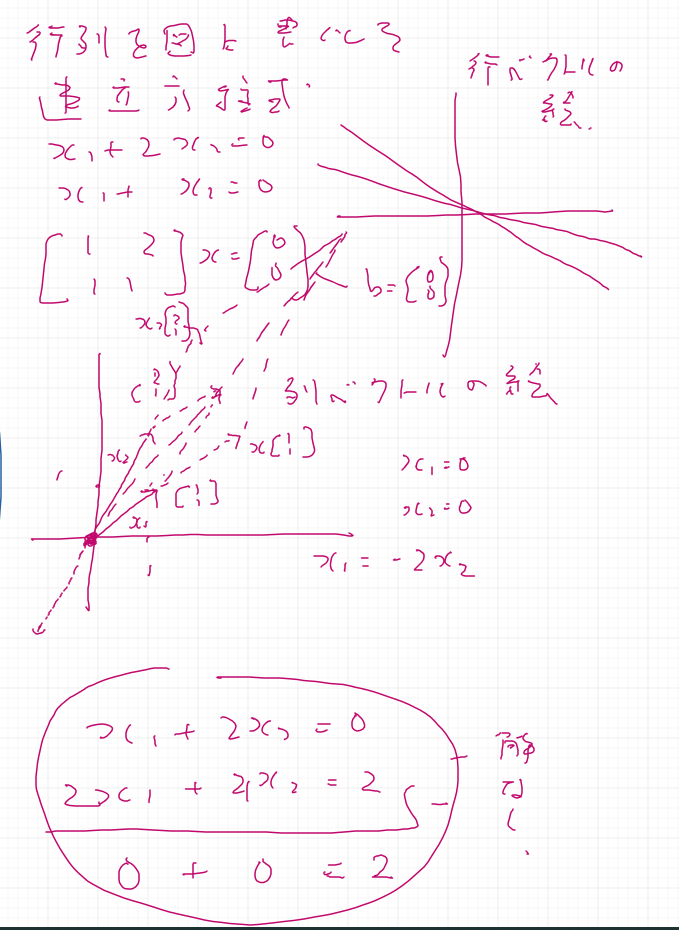 行列を図に書いてみる
連立方程式.
x₁ + 2x₂ = 0
x₁ + x₂ = 0
[1 2
1 1] x = [0
0]
行ベクトルの
絵.
b = [0
0]
列ベクトルの絵
x[1
1]
[1
1]
x₂
x₁
x₁ = 0
x₂ = 0
x₁ = -2x₂
x₁ + 2x₂ = 0
2x₁ + 4x₂ = 2
0 + 0 = 2
解
な
し
.